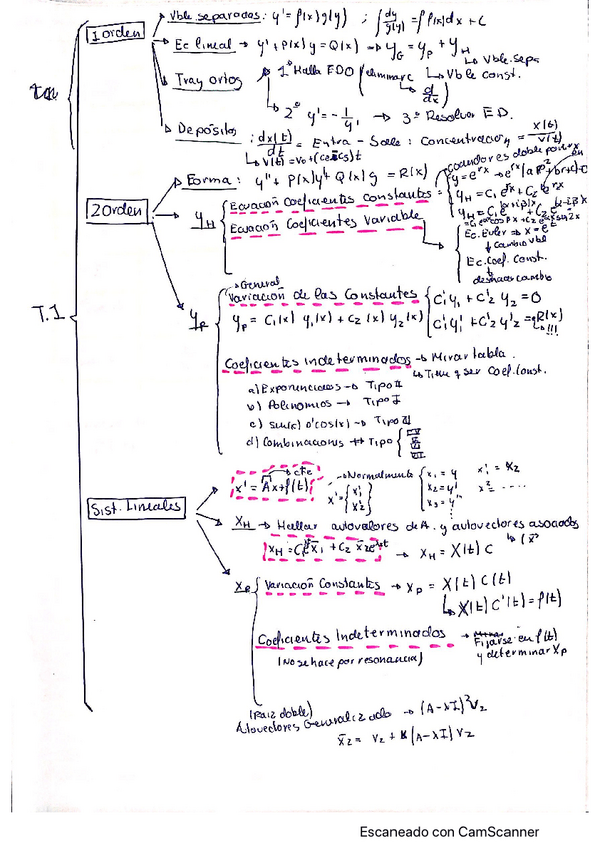 1 orden
Vble separadas: y' = f(x)g(y) ; ∫dy/g(y) = ∫f(x)dx + C
Ec lineal → y' + P(x)y = Q(x) → y_G = y_P + y_H
Vble. sepa
Vble const.
Tray ortos 1º Halla EDO (eliminar c
d/dx)
2º y' = -1/y' → 3º Resolver ED.
Depósitos: dx(t)/dt = Entra - Sale : Concentracion = x(t)/V(t)
V(t) = V0 + (ce-cs)t
2 Orden
Forma: y'' + P(x)y' + Q(x)y = R(x)
y_H
Ecuación Coeficientes Constantes
Ecuación Coeficientes Variable
y_H = C1 e^rx + C2 e^rx
Ec. Euler → x = e^t
↓ Cambio vble
Ec. Coef. Const.
↓
deshacer cambio
T.1
y_P
General
Variación de las Constantes
y_P = C1(x) y1(x) + C2(x) y2(x)
C1' y1 + C2' y2 = 0
C1' y1' + C2' y2' = R(x)
!!!
Coeficientes indeterminados → Mirar tabla.
Tiene q ser Coef. Const.
a) Exponenciales → Tipo II
b) Polinomios → Tipo I
c) sin(x) o' cos(x) → Tipo III
d) Combinaciones → Tipo
Sist. Lineales
cte
x' = Ax + f(t)
Normalmente
x' = {x1' x2'}
x1 = y
x2 = y'
x3 = y''
x1' = x2
X_H → Hallar autovalores de A. y autovectores asociados
→ X_H = X(t) C
X_P
Variación Constantes → X_P = X(t) C(t)
X(t) C'(t) = f(t)
Coeficientes Indeterminados → Fijarse en f(t)
y determinar X_P
(No se hace por resonancia)
(Raiz doble)
Autovectores Generalizado → (A-λI)²V2
x̄2 = V2 + t(A-λI)V2
Escaneado con CamScanner